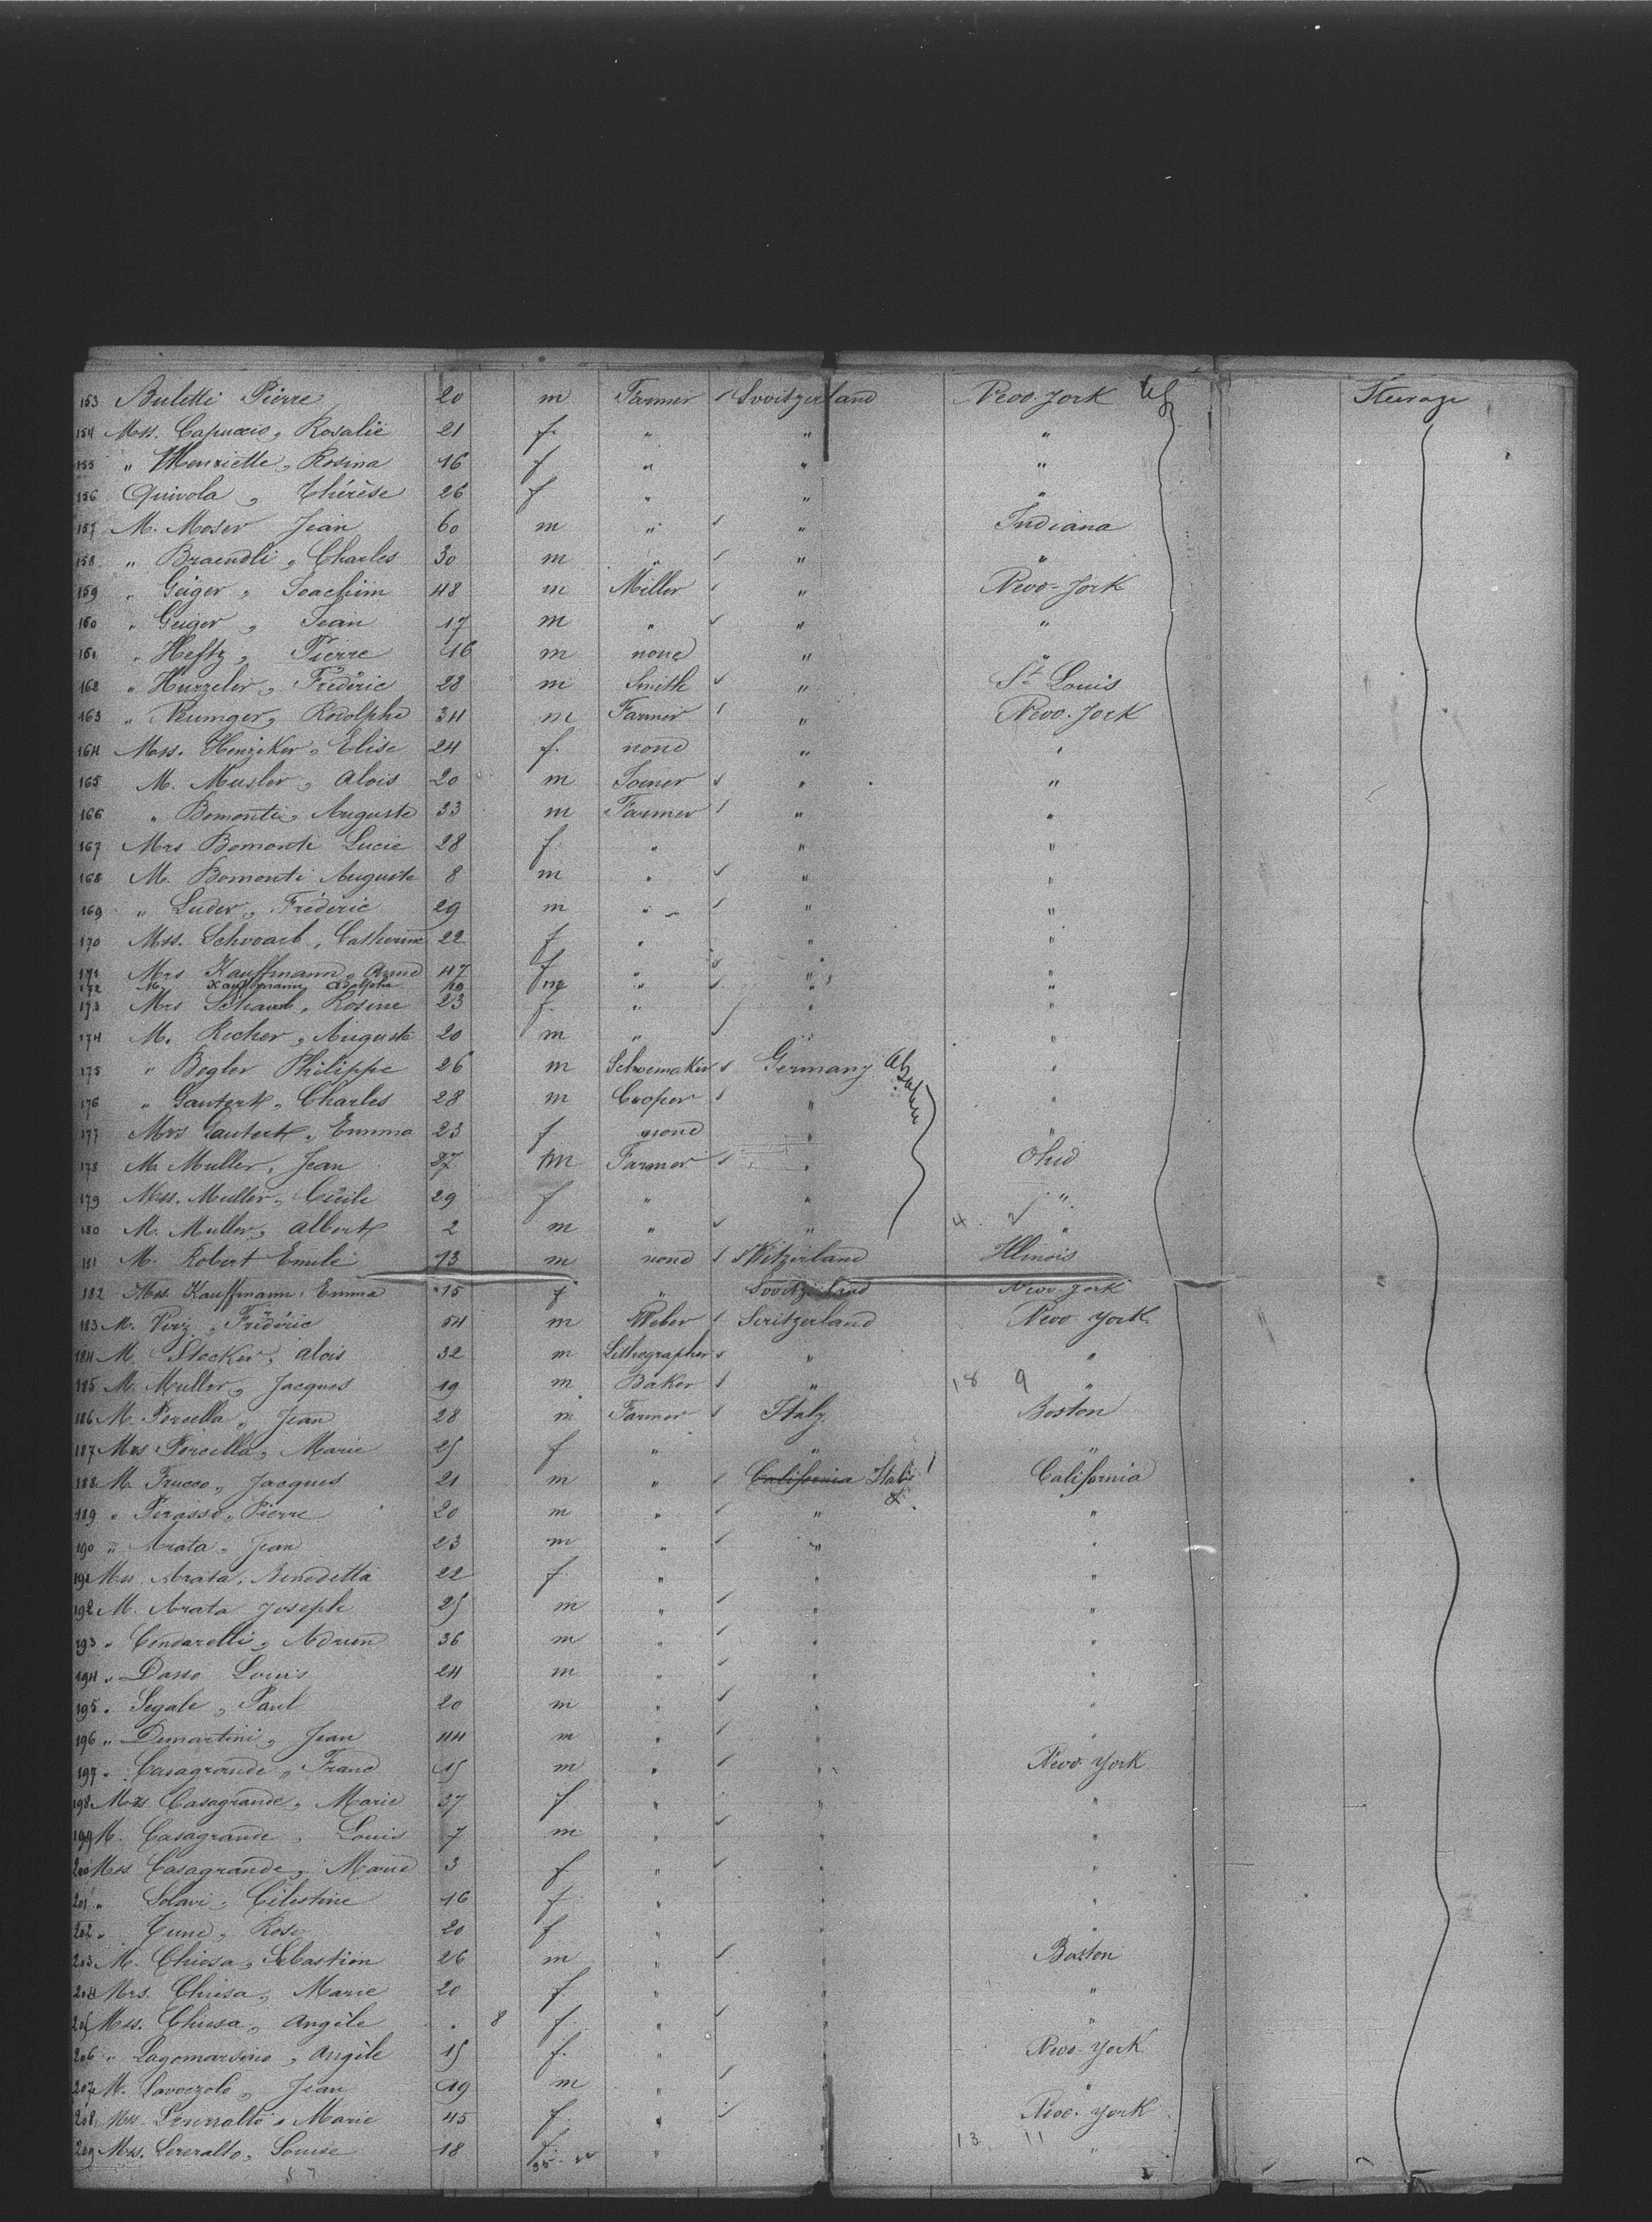 153 Buletti Pierre 20 m Farmer ✓ Switzerland New York Steerage
154 Mss. Capuccio, Rosalie 21 f. " " "
155 " Menriette, Rosina 16 f " " "
156 Quirola, Thérèse 26 f " " "
157 M. Moser Jean 60 m " ✓ " Indiana
158 " Braendli, Charles 30 m " ✓ " "
159 " Geiger, Joachim 48 m Miller ✓ " New-York
160 " Geiger, Jean 17 m " ✓ " "
161 " Hefty, Pierre 16 m none " "
162 " Hurzeler, Fréderic 28 m Smith ✓ " St. Louis
163 " Rodolphe 34 m Farmer ✓ " New. York
164 Mss. Henziker, Elise 24 f. none " "
165 M. Musler, Alois 20 m ✓ " "
166 " Bomonti, Auguste 33 m Farmer ✓ " "
167 Mrs Bomonti Lucie 28 f. " " "
168 M. Bomonti Auguste 8 m " ✓ " "
169 " Luder, Fréderic 29 m " ✓ " "
170 Mss. Schwarb, Catherine 22 f " " "
171 Mrs Kauffmann, Anne 47 f " ✓ " "
172 M. Kauffmann, Adolphe 10 m " ✓ " "
173 Mrs Schaub, Rosine 23 f. " ✓ " "
174 M. Richer, Auguste 20 m " ✓ " "
175 " Begler Philippe 26 m Schoemaker ✓ Germany "
176 " Gautert, Charles 28 m Cooper ✓ " "
177 Mrs Gautert, Emma 23 f none " "
178 M. Muller, Jean 37 m Farmer ✓ " Ohio
179 Mss. Muller, Cécile 29 f " " "
180 M. Muller, Albert 2 m " ✓ " 4. "
181 M. Robert Emile 73 m none ✓ Switzerland Illinois
182 Mss. Kauffmann, Emma 15 f " Switzerland New York
183 M. Fréderic 54 m Weber ✓ Switzerland New York
184 M. Stocker, Alois 32 m Lithographer ✓ " "
185 M. Muller, Jacques 19 m Baker ✓ " 18 9 "
186 M. Porcella, Jean 28 m Farmer ✓ Italy Boston
187 Mrs Porcella, Marie 25 f " " "
188 M. Frucco, Jacques 21 m " ✓ California Italy California
189 " Perasso, Pierre 20 m " ✓ " "
190 " Arata, Jean 23 m " ✓ " "
191 Mss. Arata, Benedetta 22 f. " " "
192 M. Arata Joseph 25 m " ✓ " "
193 " Cendarelli, Adrien 36 m " ✓ " "
194 " Dasso Louis 24 m " ✓ " "
195 " Segale, Paul 20 m " ✓ " "
196 " Demartini, Jean 44 m " ✓ " "
197 " Casagrande, Franc 15 m " ✓ " New York
198 Mrs Casagrande, Marie 37 f " " "
199 M. Casagrande, Louis 7 m " ✓ " "
200 Mss Casagrande, Marie 3 f " ✓ " "
201 " Solari, Célestine 16 f. " " "
202 " Cuneo, Rose 20 f " " "
203 M. Chiesa, Sebastien 26 m " ✓ " Boston
204 Mrs. Chiesa, Marie 20 f " " "
205 Mss. Chiesa, Angèle . 8 f. " ✓ " "
206 " Lagomarsino, Angèle 15 f. " " New York
207 M. Jean 19 m " ✓ " "
208 Mss. Marie 45 f " ✓ " New York
209 Mss. Louise 18 f. " 13 11 "